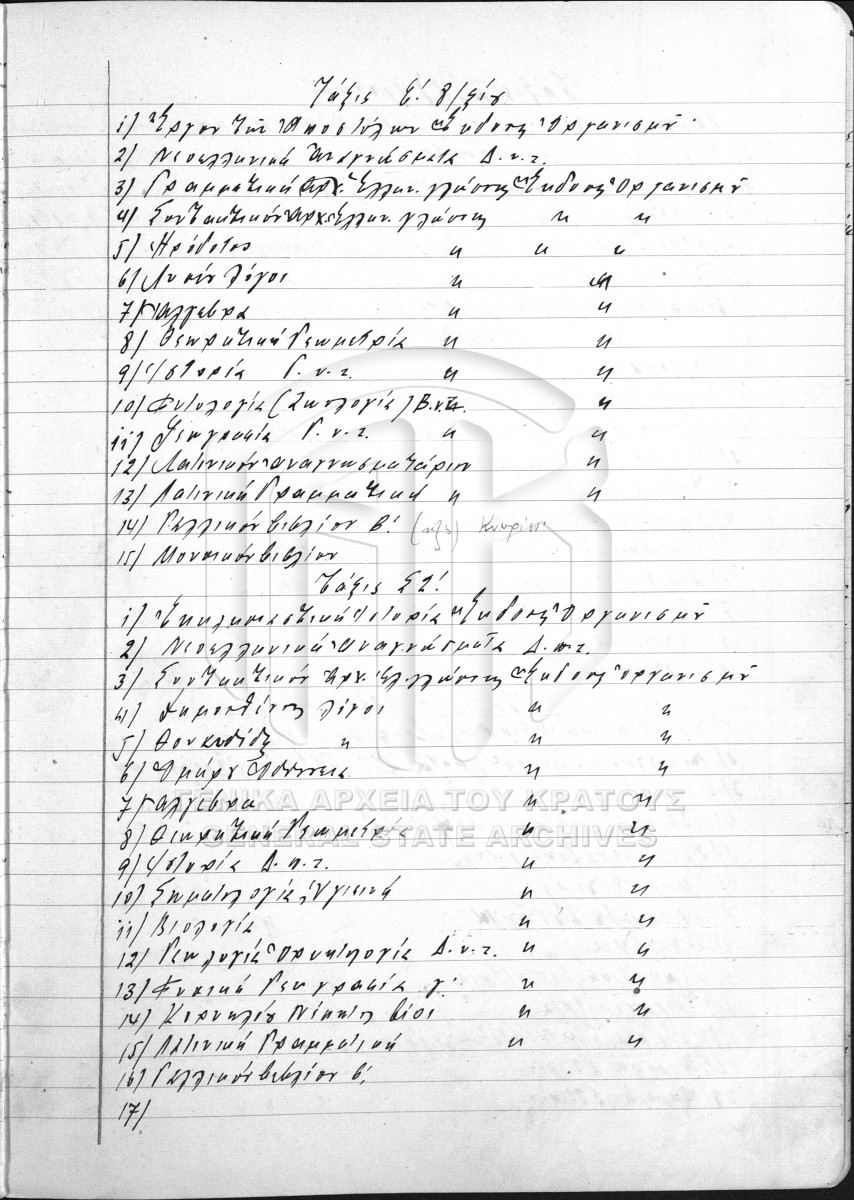 Τάξις Ε! 8/ξίου
1) Ἔργον τῶν Ἀποστόλων Ἔκδοσις Ὀργανισμοῦ
2) Νεοελληνικά Ἀναγνώσματα Δ. γ. τ.
3) Γραμματική Ἀρχ. Ἑλλην. γλώσσης Ἔκδοσις Ὀργανισμοῦ
4) Συντακτικόν Ἀρχ. Ἑλλην. γλώσσης " "
5) Ἡρόδοτος " " "
6) Λυσίου λόγοι " "
7) Ἄλγεβρα " "
8) Θεωρητική Γεωμετρία " "
9) Ἱστορία Γ. γ. τ. " "
10) Φυσιολογία (Ζωολογία) Β. γ. τ. "
11) Γεωγραφία Γ. γ. τ. " "
12) Λατινικόν ἀναγνωσματάριον "
13) Λατινική Γραμματική " "
14) Γαλλικόν βιβλίον Β!
15) Μουσικόν βιβλίον
Τάξις ΣΤ!
1) Ἐκκλησιαστική Ἱστορία Ἔκδοσις Ὀργανισμοῦ
2) Νεοελληνικά Ἀναγνώσματα Δ. γ. τ.
3) Συντακτικόν Ἀρχ. Ἑλ. γλώσσης Ἔκδοσις Ὀργανισμοῦ
4) Δημοσθένους λόγοι " "
5) Θουκυδίδης " " "
6) Ὁμήρου Ὀδύσσεια " "
7) Ἄλγεβρα " "
8) Θεωρητική Γεωμετρία " "
9) Ἱστορία Δ. γ. τ. " "
10) Σωματολογία, Ὑγιεινή " "
11) Βιολογία " "
12) Γεωλογία Ὀρυκτολογία Δ. γ. τ. " "
13) Φυσική Γεωγραφία γ' " "
14) Κορνηλίου Νέπωτος βίοι " "
15) Λατινική Γραμματική " "
16) Γαλλικόν βιβλίον β!
17)
ΓΕΝΙΚΑ ΑΡΧΕΙΑ ΤΟΥ ΚΡΑΤΟΥΣ
GENERAL STATE ARCHIVES